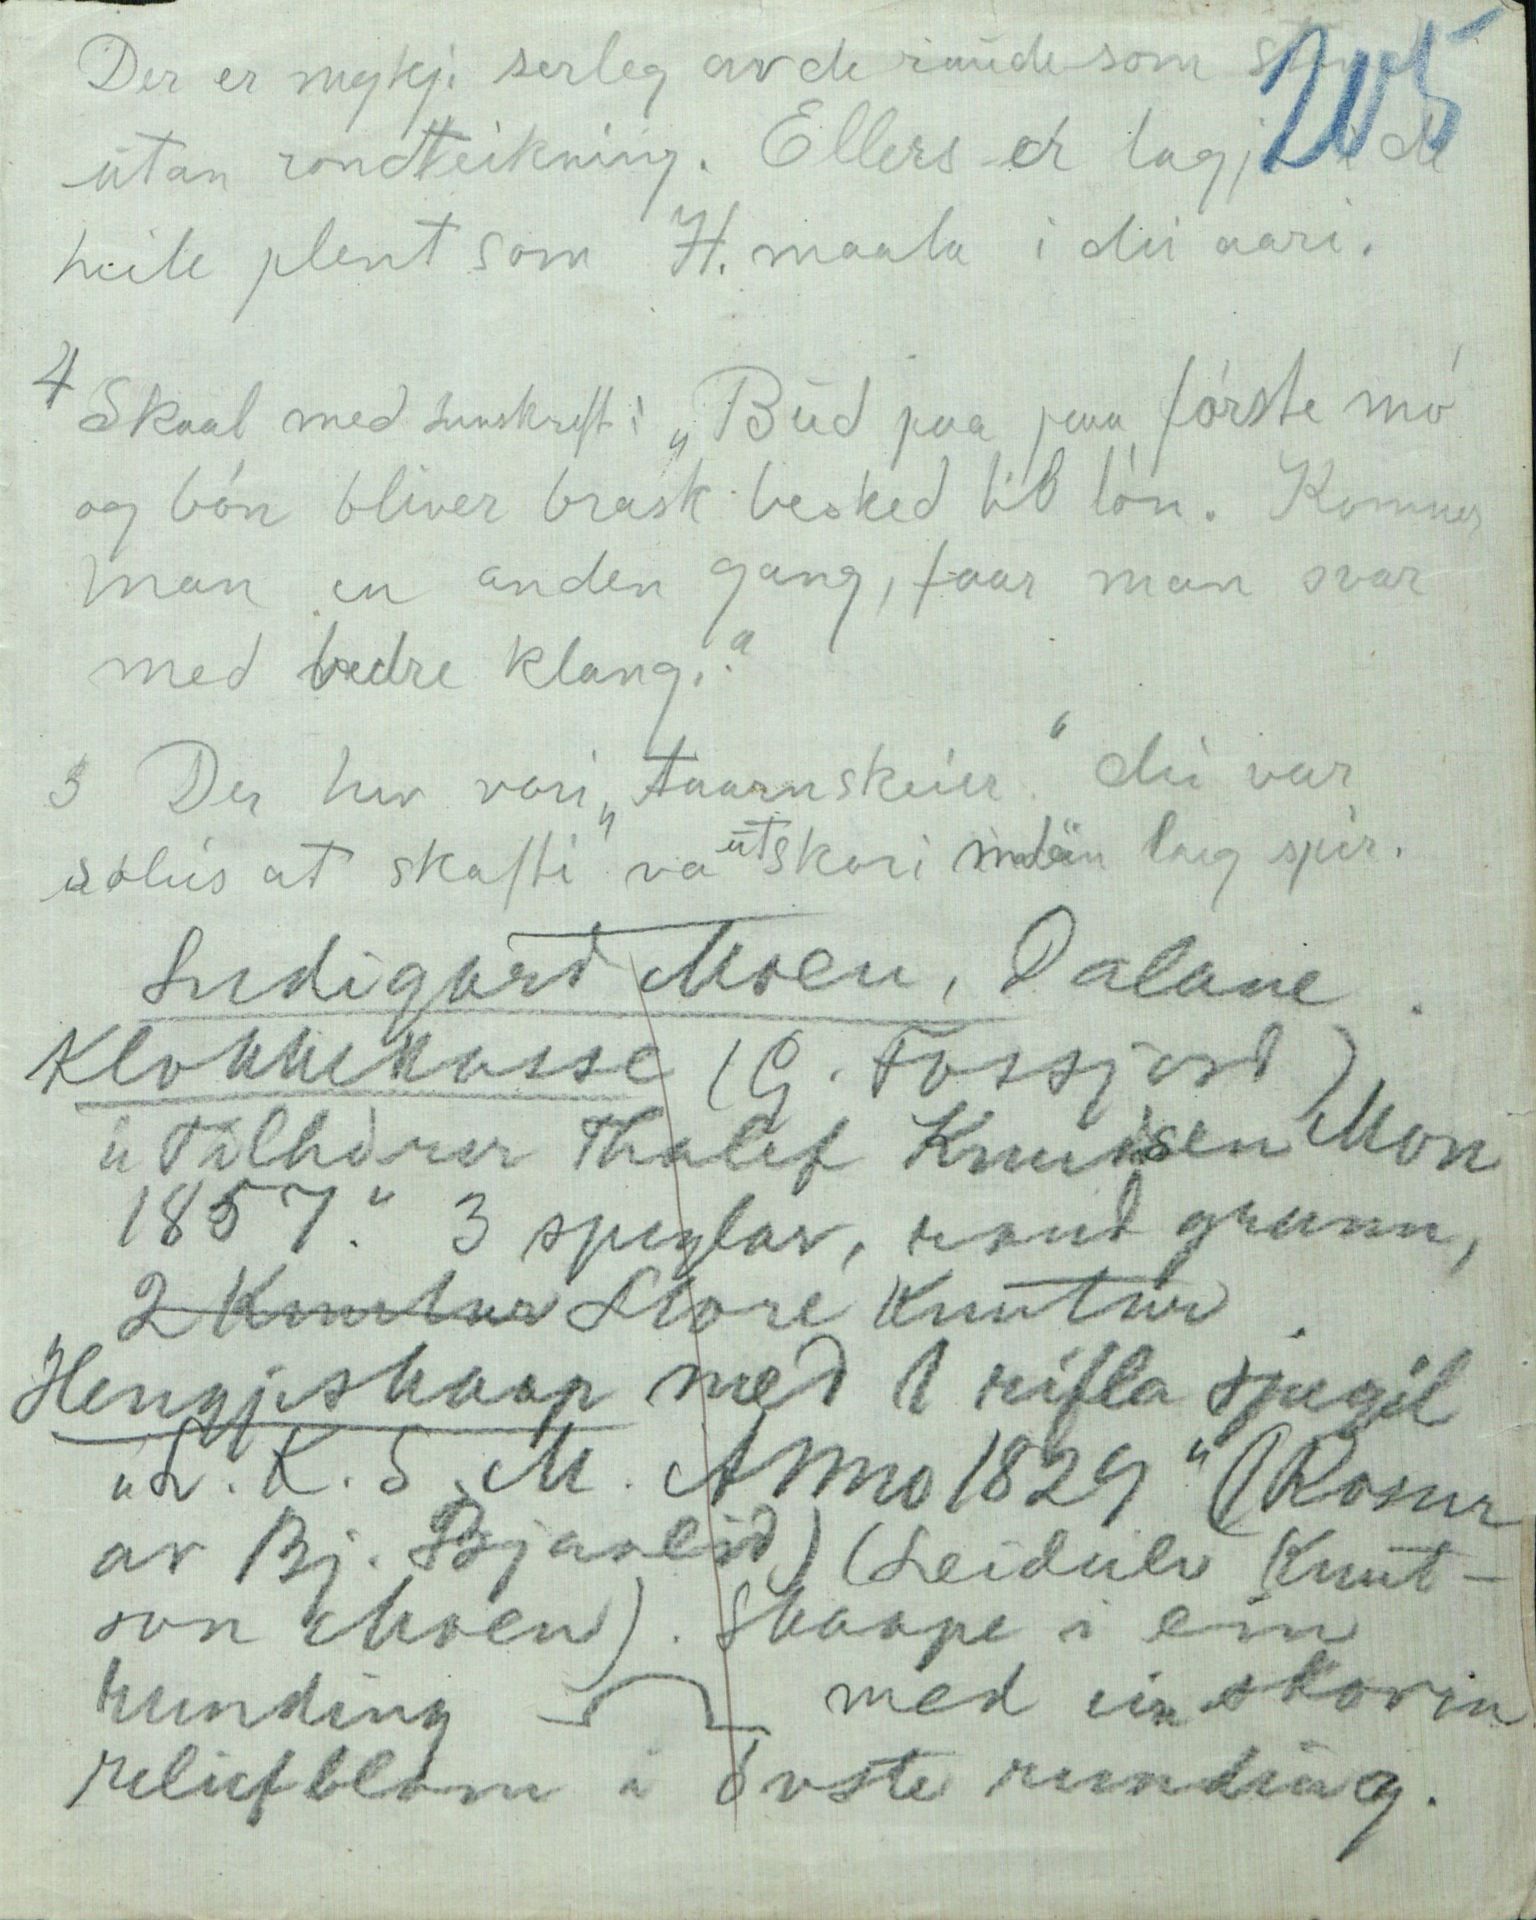 205
Der er mykji serleg av de raude som
utan rondteikning. Ellers er lagj de
heile plent som H. maala i dei aari.
4 Skaal med Innskrift: „Bud paa paa første mö
og bön bliver brask besked til lön. Kommer
man en anden gang, faar man svar
med bedre klang."
3 Der hev vori „taarnskeier" dei var
soleis at skafti va utskori med ein lag spir.
Sudigard Moen, Dalane.
Klokkekasse (G. Fossjord)
„Tilhörer Thalef Knudsen Mon
1857." 3 speglar, raud grunn,
2 Knutar Store Knutur.
Hengjeskaap med 1 rifla spegil
„L. K. S. M. Anno 1829" (Rosur
av Bj. Bjaalid) (Leidulv Knut-
son Moen). Skaape i ein
runding med ein skorin
reliefblom i övste runding.